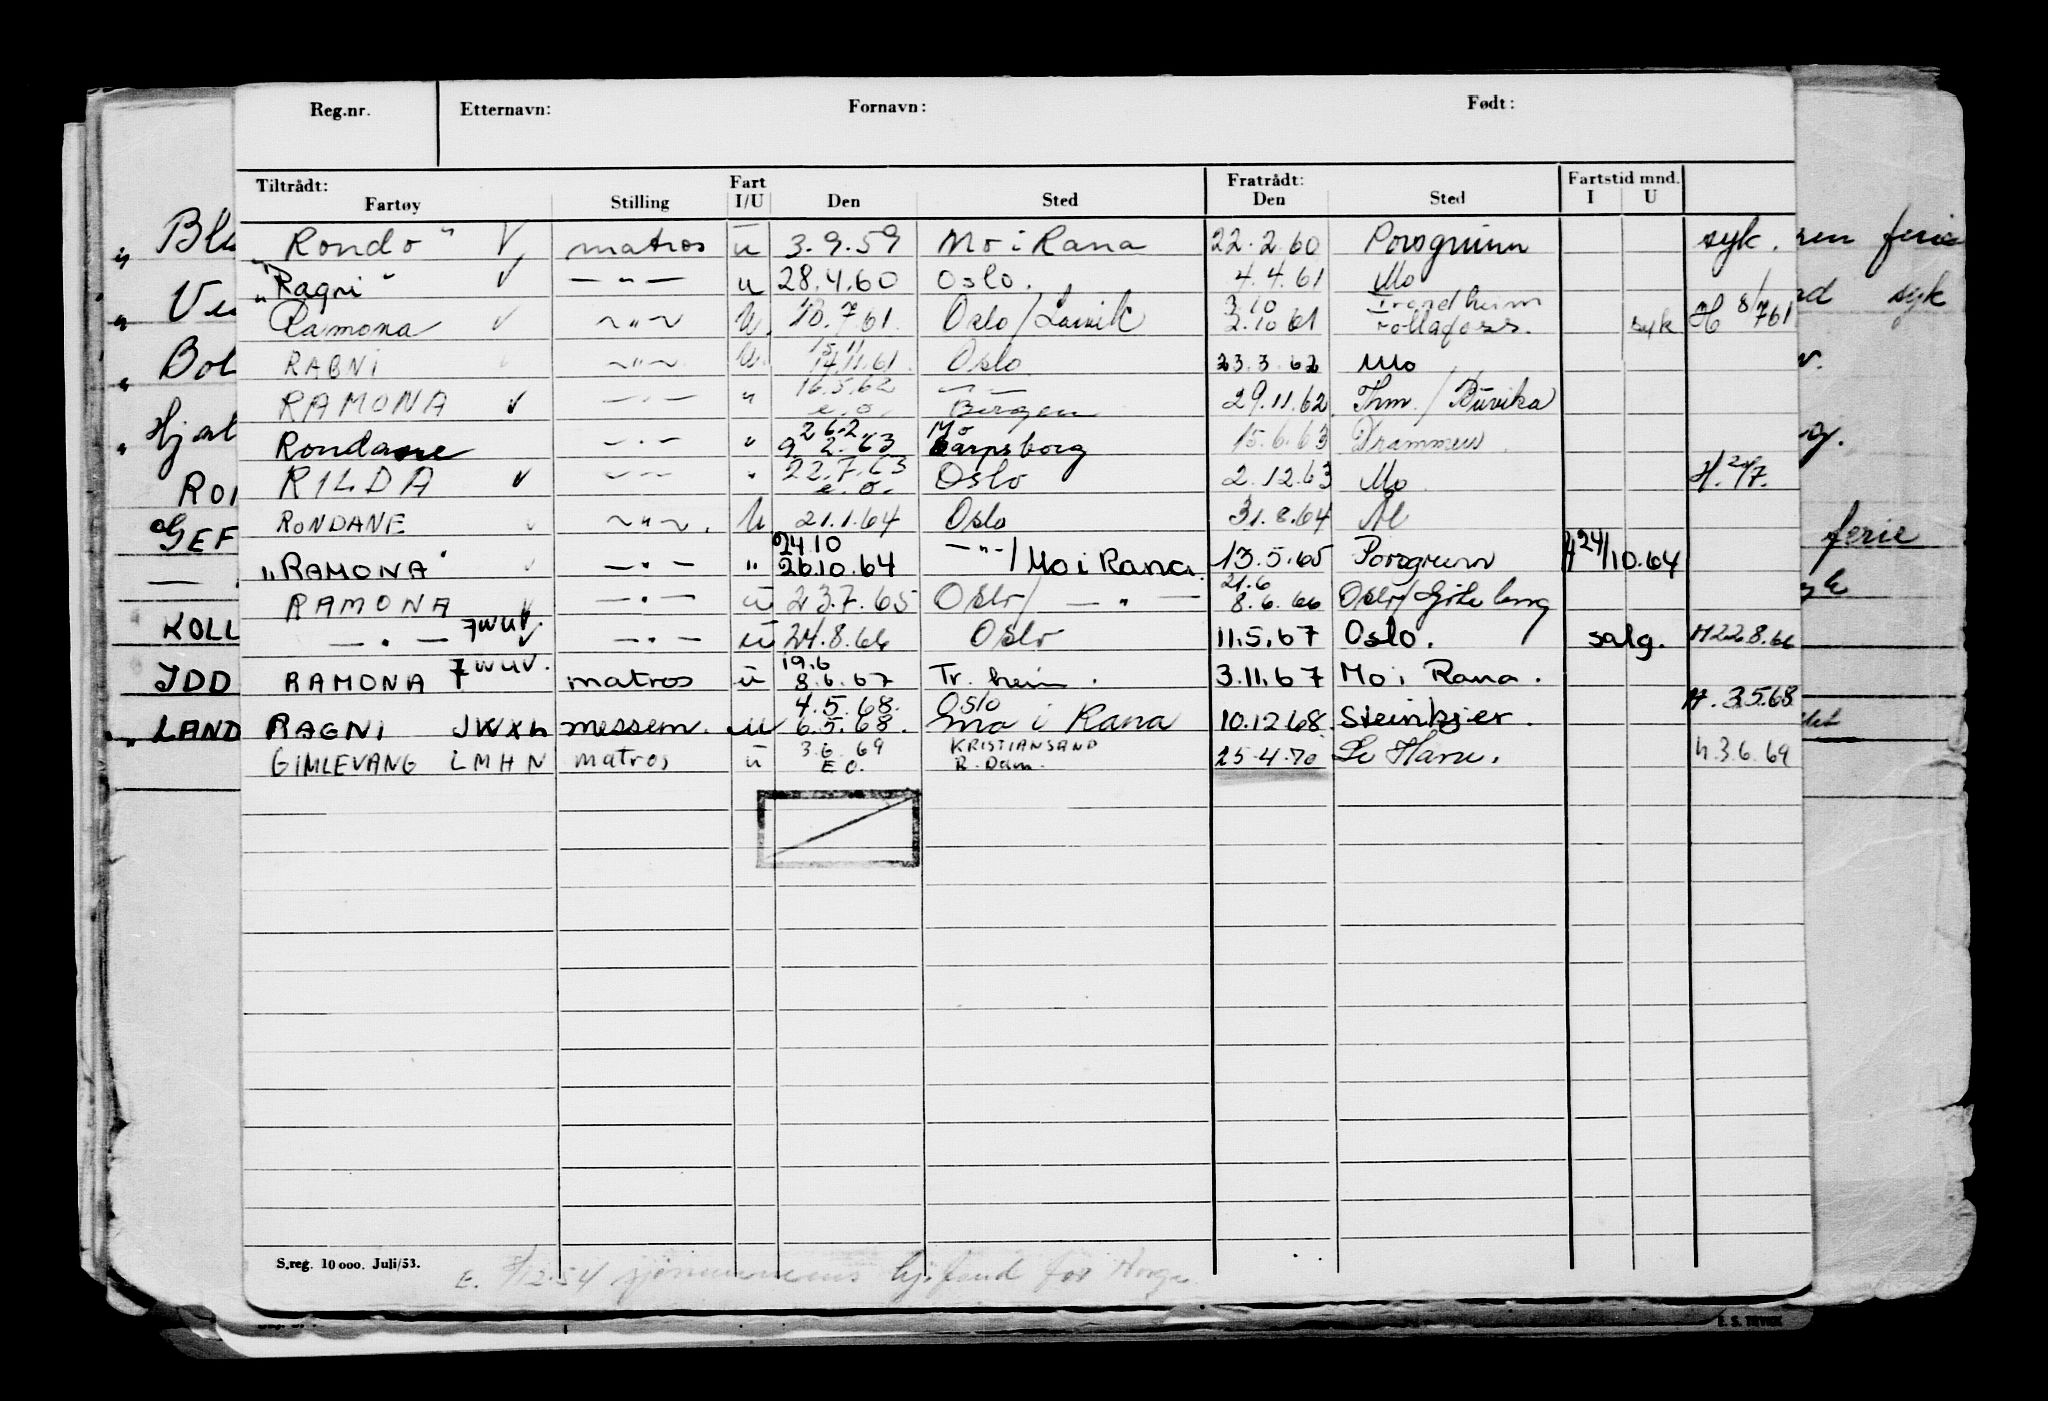 Reg.nr. Etternavn: Fornavn: Født:
Tiltrådt: Fartøy Stilling Fart I/U Den Sted Fratrådt: Den Sted Fartstid mnd. I U
"Rondo" V matros u 3.9.59 Mo i Rana 22.2.60 Porsgrunn syk.
"Ragni" V — " — u 28.4.60 Oslo. 4.4.61 Mo
Ramona V ~ " ~ U. 10.7.61. Oslo/Larvik 3.10 2.10.61 Trondheim syk H 8/7 61
RAGNI ~ " ~ U. 15.11 14.11.61. Oslo. 23.3.62 Mo
RAMONA V — " — " 16.5.62 e.o. — — Bergen 29.11.62 Thm./Buvika
Rondane — " — " 26.2. 9.2.63 Mo Sarpsborg 15.6.63 Drammen
RILDA V — — " 22.7.63 e.o. Oslo 2.12.63 Mo H. 20/7.
RONDANE V ~ " ~. U 21.1.64 Oslo 31.8.64
"RAMONA" V — " — " 24.10 26.10.64 — " — / Mo i Rana. 13.5.65 Porsgrunn H 24/10.64
RAMONA V — " — u 23.7.65 Oslo/ — " — 21.6 8.6.66 Oslo/Gøteborg
— " — 7WUV. V — " — u 24.8.66 Oslo 11.5.67 Oslo. salg. H 22.8.66
RAMONA 7WUV. matros u 19.6 8.6.67 Tr.heim. 3.11.67 Mo i Rana.
RAGNI JWXH messem. U 4.5.68. 6.5.68. Oslo Mo i Rana 10.12.68. Steinkjer. H. 3.5.68
GIMLEVANG LMHN matros u 3.6.69 E.O. KRISTIANSAND R.Dam. 25.4.70 Le Havre. H. 3.6.69
S.reg. 10 000. Juli/53.
E.
for Norge
" Bl
" Ve
" Bol
" Hjal
ROI
GEF
—
KOLL
IDD
" LAND
ferie
syk
ferie